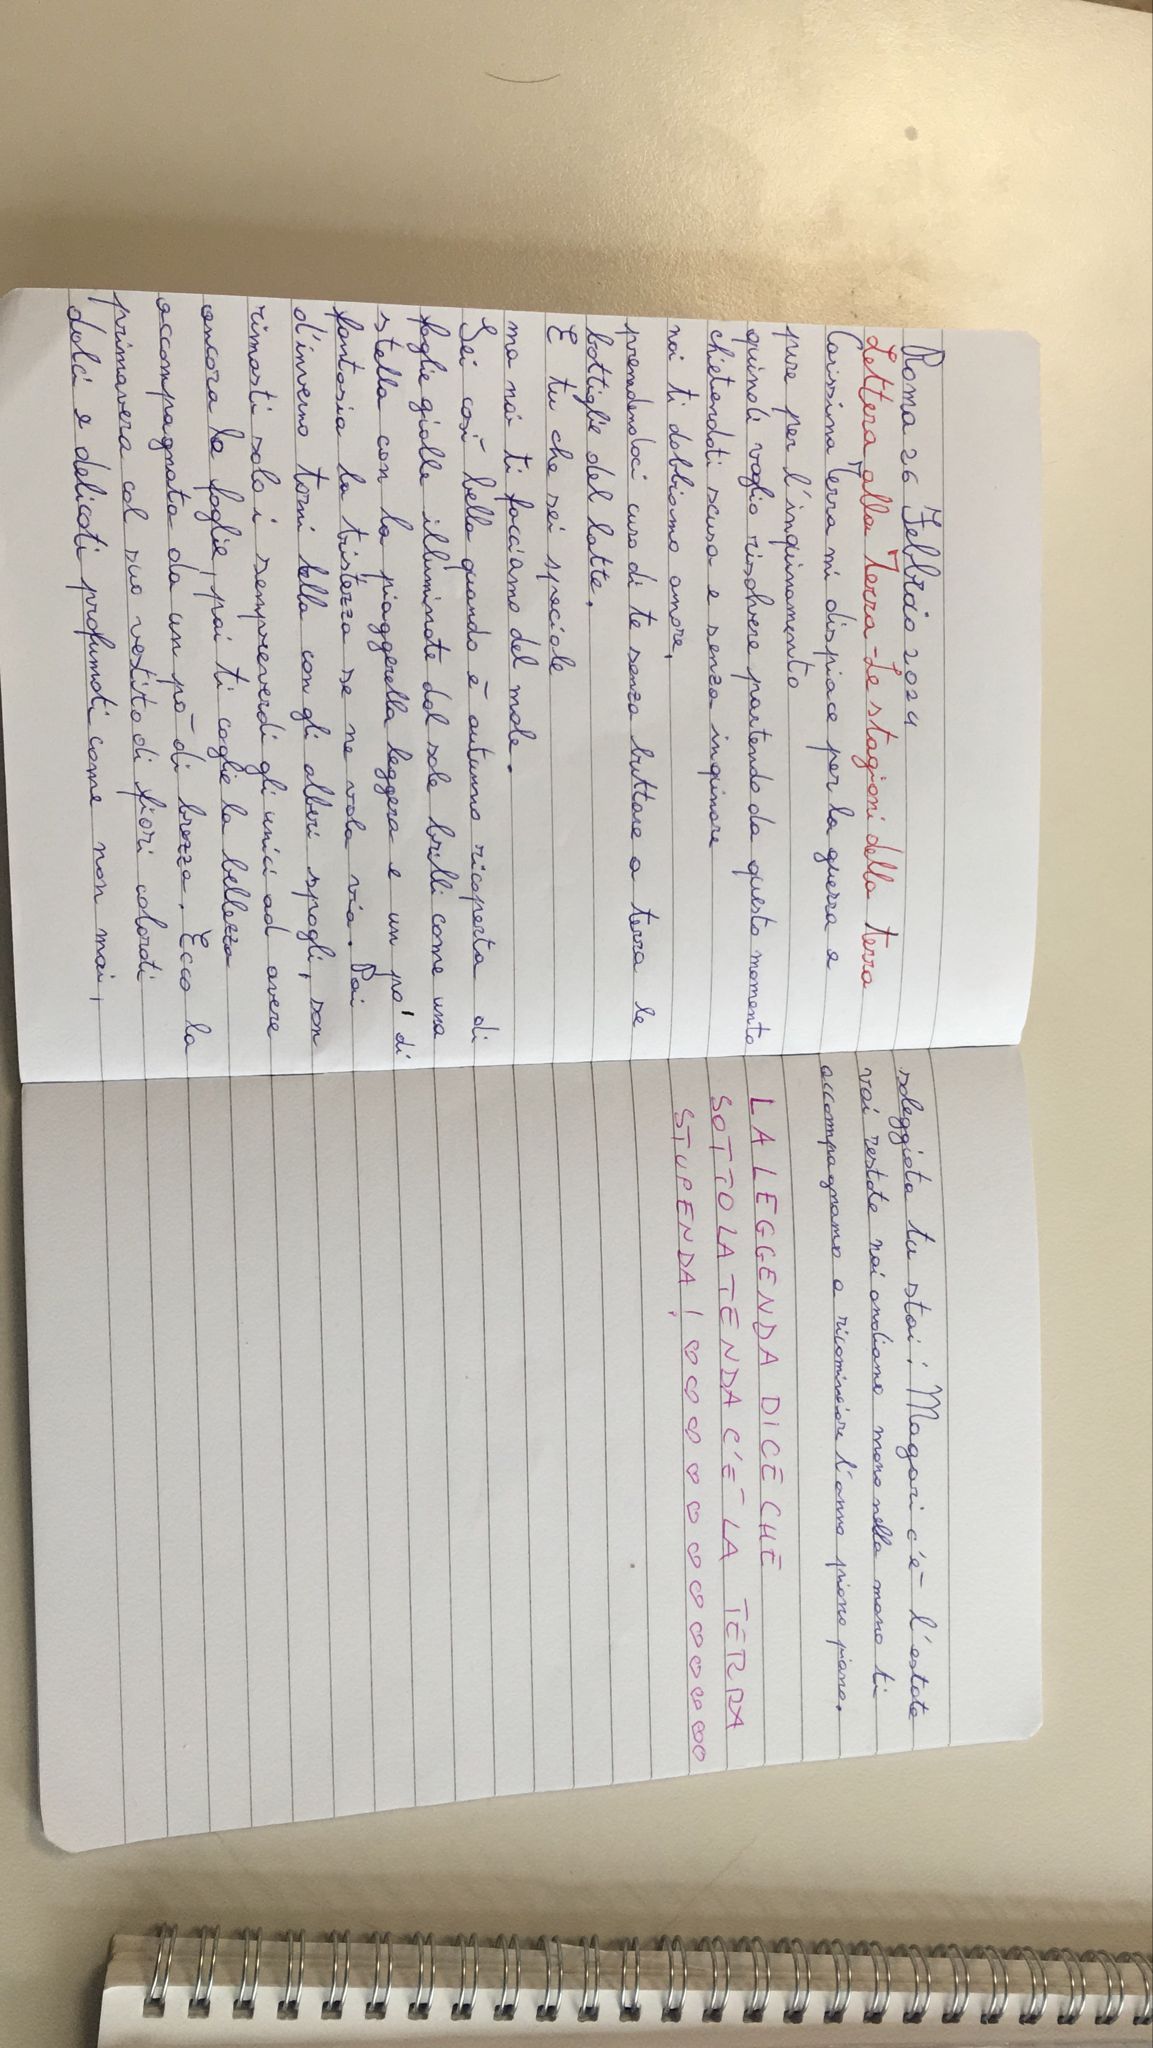 Roma 26 Febbraio 2024
Lettera alla Terra - Le stagioni della terra
Carissima Terra mi dispiace per la guerra e
pure per l'inquinamento
quindi voglio risolvere partendo da questo momento
chietendoti scusa e senza inquinare
noi ti dobbiamo amore,
premdendoci cura di te senza buttare a terra le
bottiglie del latte.
E tu che sei speciale
ma noi ti facciamo del male.
Sei così bella quando è autunno ricoperta di
foglie gialle illuminate dal sole brilli come una
stella con la pioggerella leggera e un po' di
fantasia la tristezza se ne vola via. Poi
d'inverno torni bella con gli alberi spogli, son
rimasti solo i sempreverdi gli unici ad avere
ancora le foglie, poi ti coglie la bellezza
accompagnata da un pò di brezza. Ecco la
primavera col suo vestito di fiori colorati
dolci e delicati profumati come non mai,
soleggiata tu stai; Magari c'è l'estate
voi restate noi andiamo mano nella mano ti
accompagnamo a ricominciare l'anno piano piano.
LA LEGGENDA DICE CHE
SOTTO LA TENDA C'È LA TERRA
STUPENDA! ♡♡♡♡♡♡♡♡♡♡♡♡